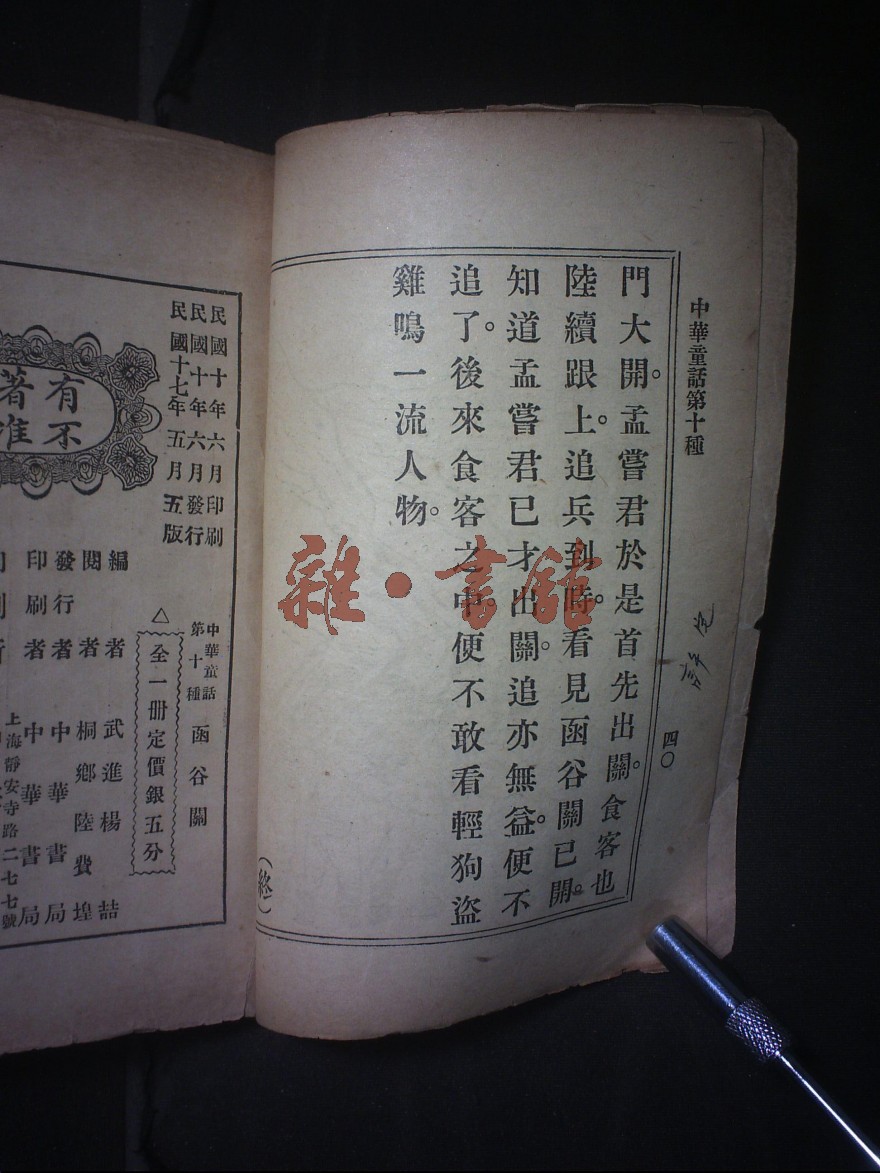 中華童話第十種
四〇
門大開。孟嘗君於是首先出關。食客也
陸續跟上。追兵到時。看見函谷關已開。
知道孟嘗君已才出關。追亦無益。便不
追了。後來食客之中。便不敢看輕狗盜
雞鳴一流人物。
(終)
雜·書館
民國十年六月印刷
民國十年六月發行
民國十七年五月五版
中華童話第十種 函谷關
△全一冊定價銀五分
有不
著准
編者 武進楊喆
閱者 桐鄉陸費堭
發行者 中華書局
印刷者 中華書局
上海靜安寺路二七七號